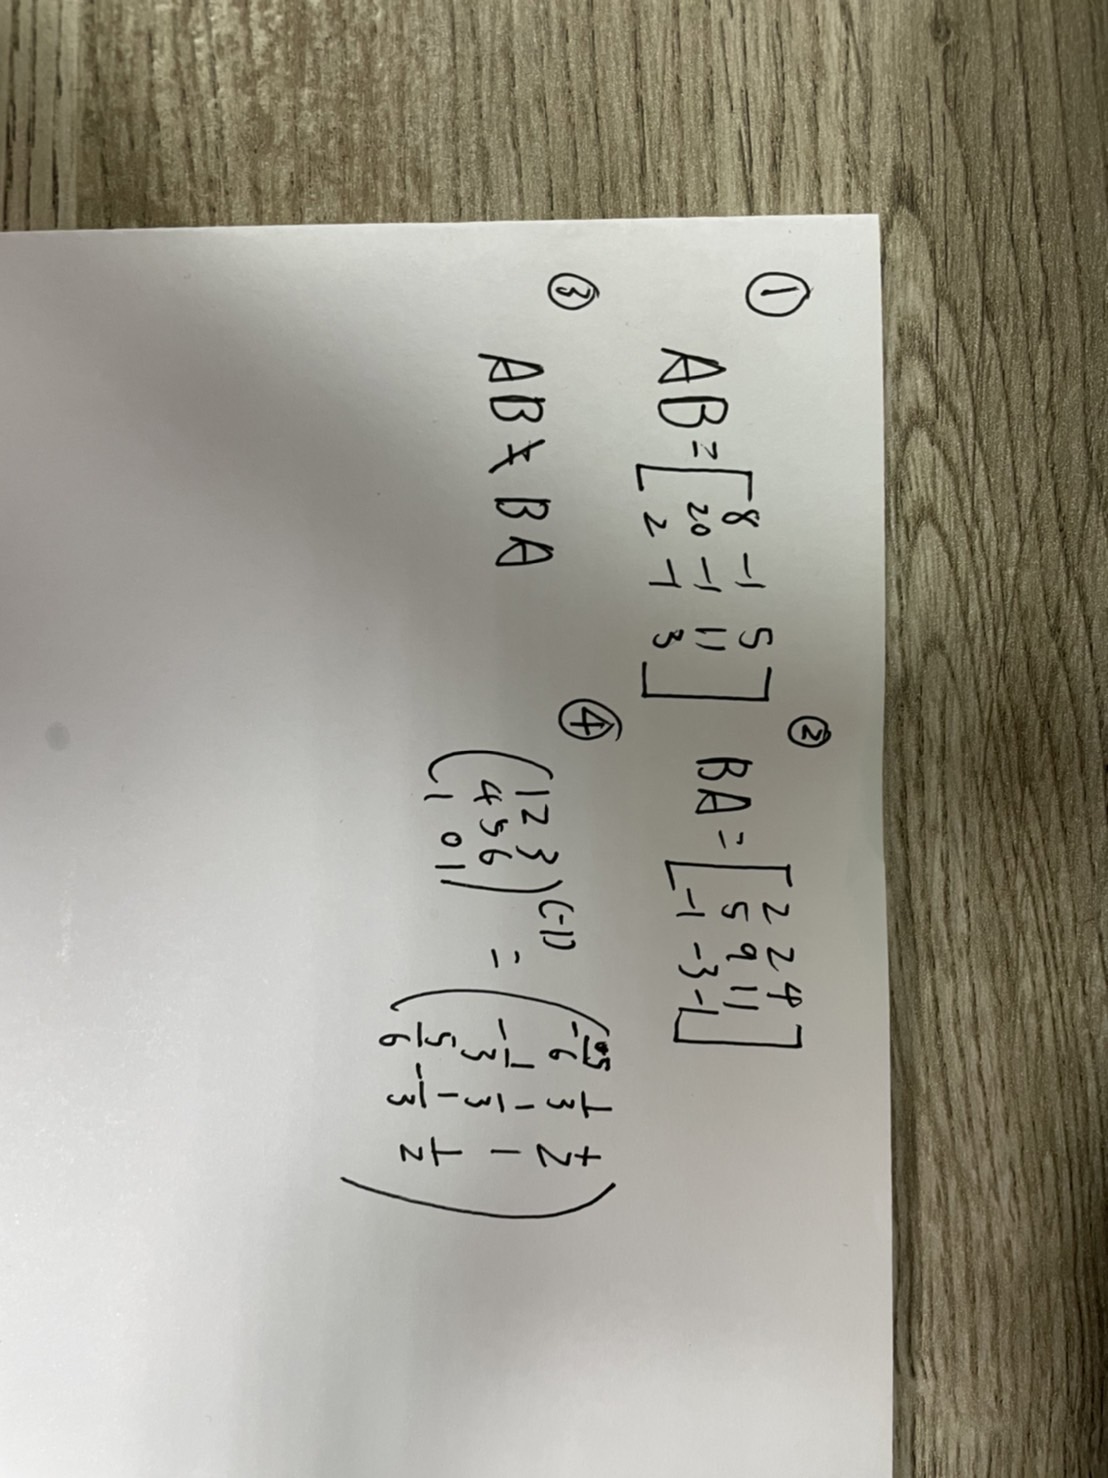 ①
AB = [ 8 -1 5
20 -1 11
2 -1 3 ]
②
BA = [ 2 2 4
5 9 11
-1 -3 -1 ]
③
AB ≠ BA
④
( 1 2 3
4 5 6
1 0 1 )^(-1) = ( -5/6 1/3 1/2
-1/3 1/3 1
5/6 -1/3 1/2 )